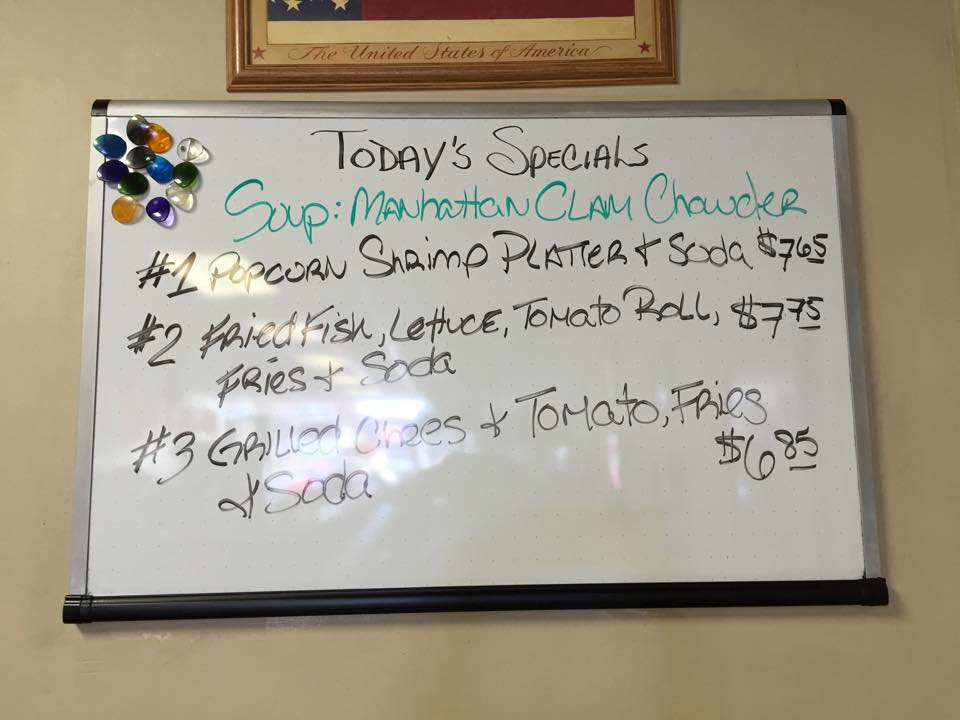 The United States of America
Today's Specials
Soup: Manhattan Clam Chowder
#1 Popcorn Shrimp Platter & Soda $7.65
#2 Fried Fish, Lettuce, Tomato Roll, $7.75
Fries & Soda
#3 Grilled Chees & Tomato, Fries
$6.85
& Soda